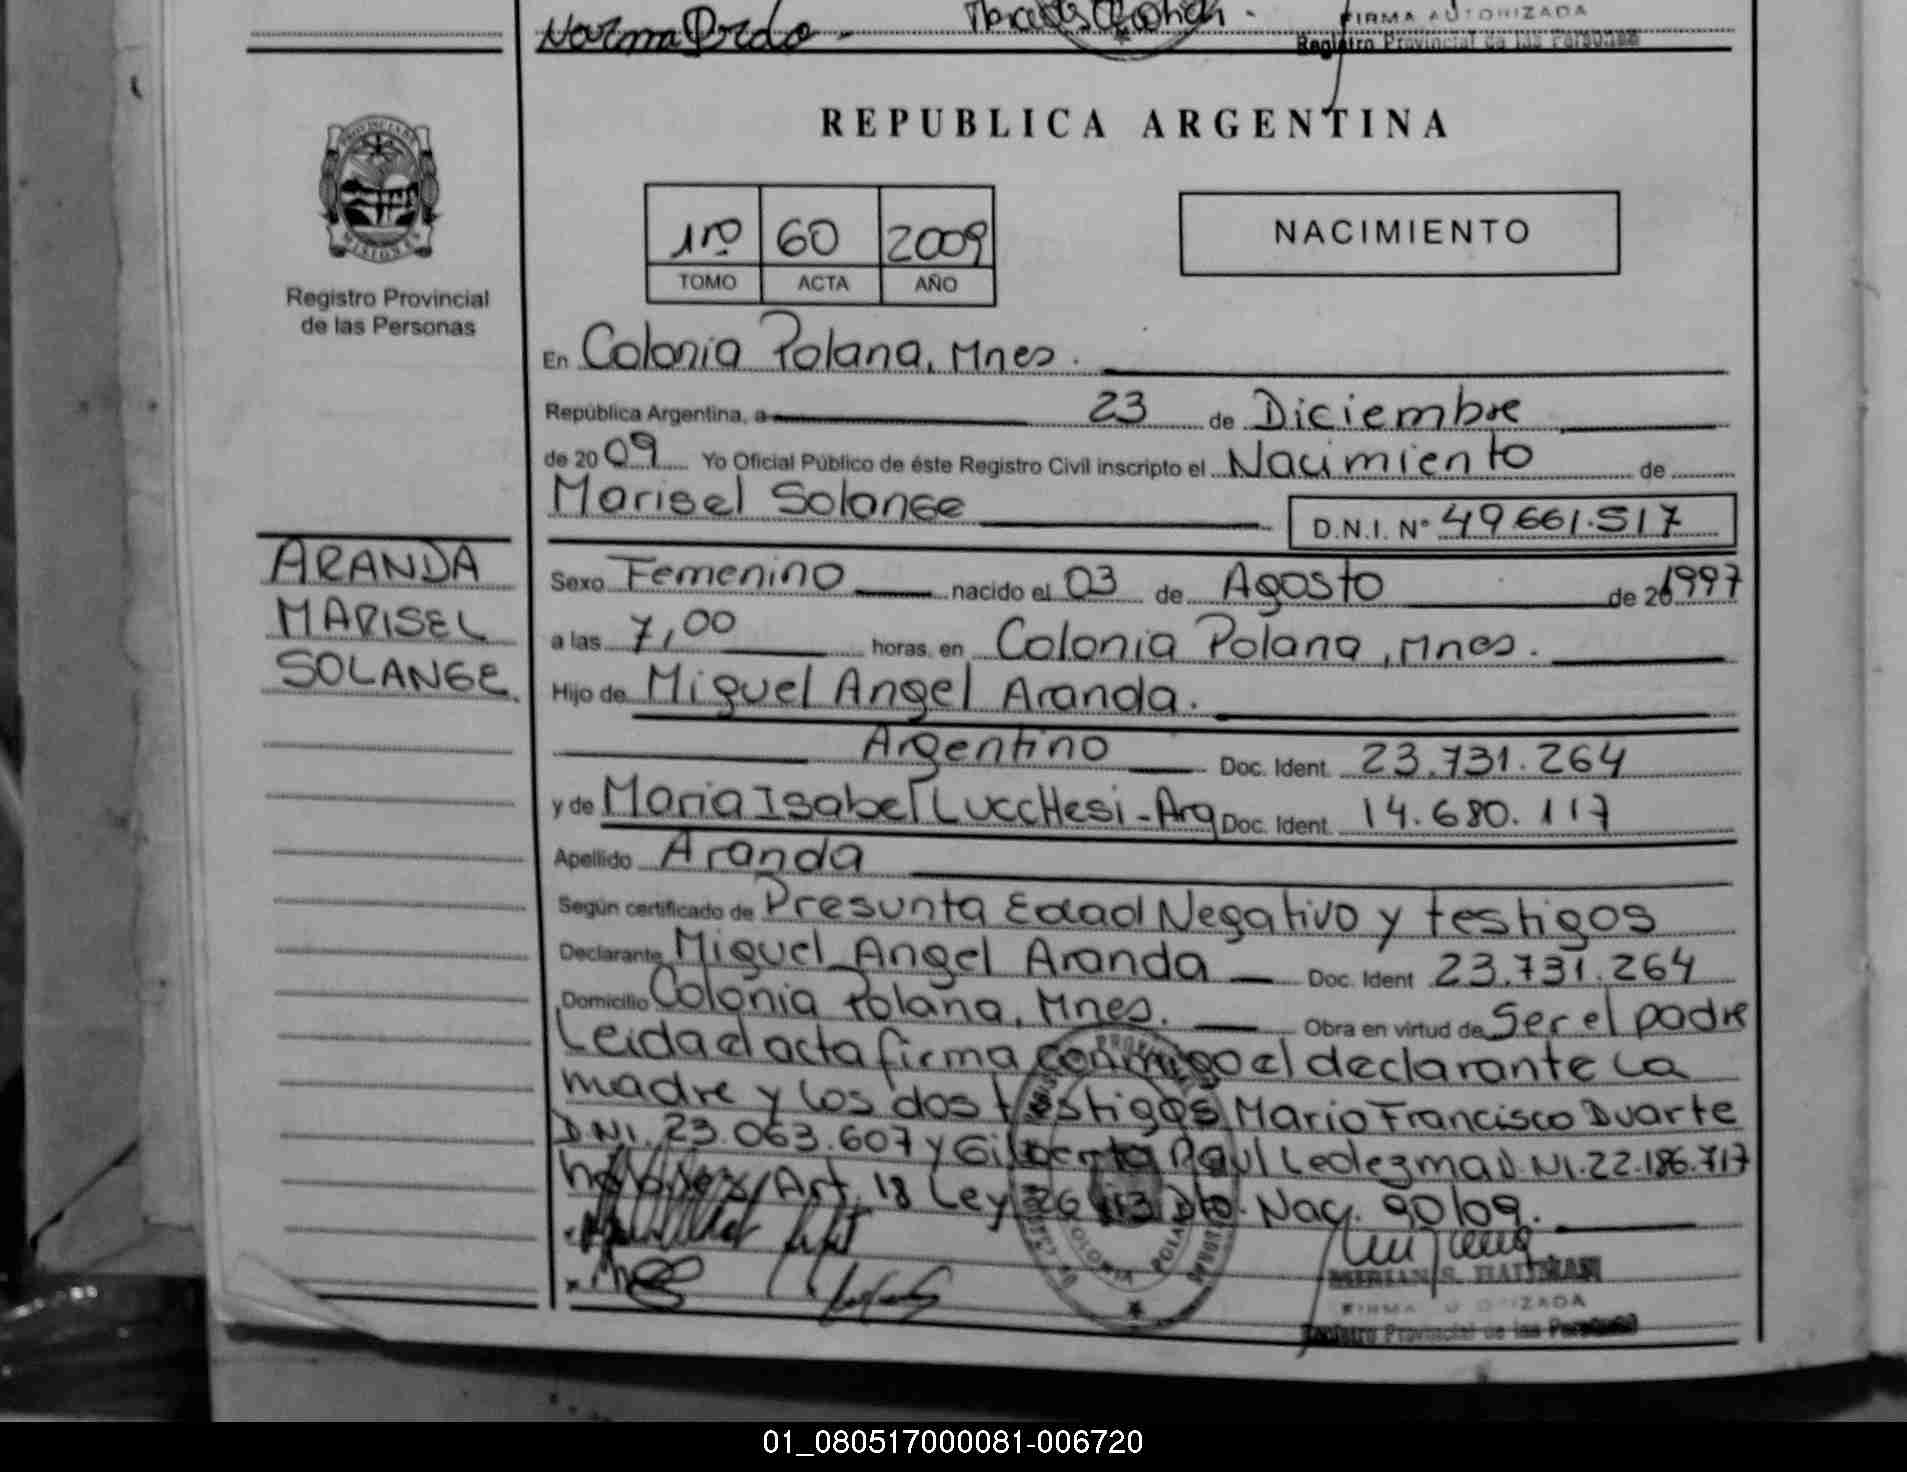 Norma
FIRMA AUTORIZADA
Registro Provincial de las Personas
REPUBLICA ARGENTINA
1ro 60 2009
TOMO ACTA AÑO
NACIMIENTO
Registro Provincial
de las Personas
En Colonia Polana, Mnes.
República Argentina, a 23 de Diciembre
de 2009 Yo Oficial Público de éste Registro Civil inscripto el Nacimiento de
Marisel Solange
D.N.I. N° 49.661.517
ARANDA
MARISEL
SOLANGE.
Sexo Femenino nacido el 03 de Agosto de 20 1997
a las 7,00 horas, en Colonia Polana, Mnes.
Hijo de Miguel Angel Aranda.
Argentino Doc. Ident. 23.731.264
y de Maria Isabel LuccHesi - Arg Doc. Ident. 14.680.117
Apellido Aranda
Según certificado de Presunta Edad Negativo y testigos
Declarante Miguel Angel Aranda Doc. Ident 23.731.264
Domicilio Colonia Polana, Mnes. Obra en virtud de Ser el padre
Leida el acta firma conmigo el declarante la
madre y los dos testigos Mario Francisco Duarte
D.NI. 23.063.607 y Gilberto Raul Ledezma D.NI. 22.186.717
Art. 18 Ley 26.413 Dto. Nac. 90/09.
COLONIA POLANA
FIRMA AUTORIZADA
Registro Provincial de las Personas
01_080517000081-006720